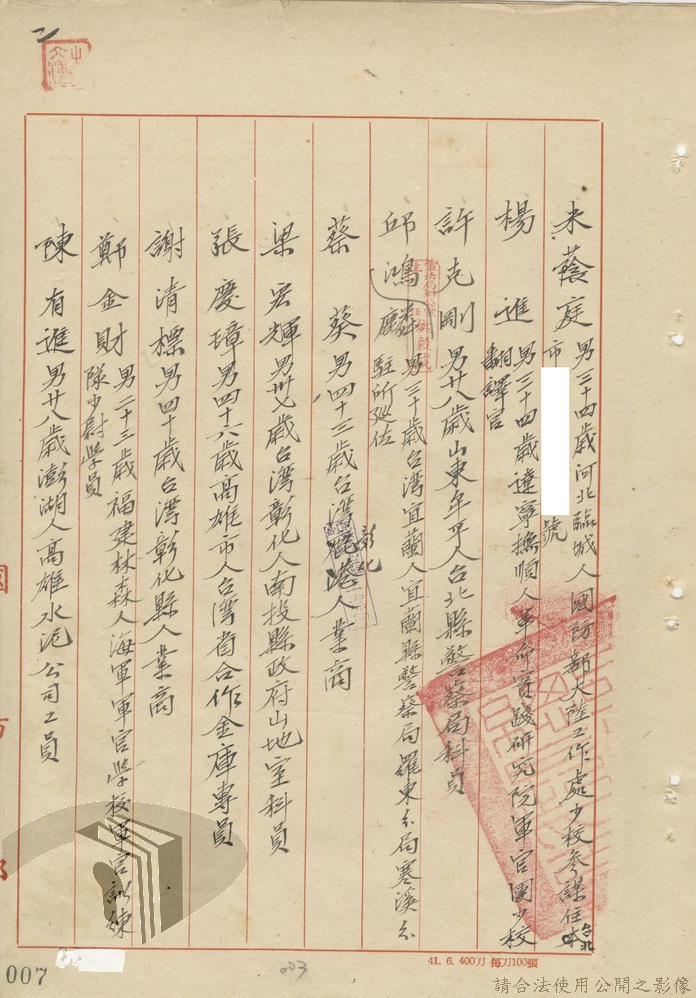 朱蔭庭 男三十四歲河北臨城人國防部大陸工作處少校參謀住台北
市 號
楊進 男三十四歲遼寧撫順人革命實踐研究院軍官團少校
翻譯官
許克剛 男廿八歲山東牟平人台北縣警察局科員
邱鴻麟 男三十歲台灣宜蘭人宜蘭縣警察局羅東分局寒溪分
駐所巡佐
蔡葵 男四十三歲台灣彰化鹿港人業商
梁宏輝 男卅歲台灣彰化人南投縣政府山地室科員
張慶璋 男四十六歲高雄市人台灣省合作金庫專員
謝清標 男四十歲台灣彰化縣人業商
鄭金財 男二十三歲福建林森人海軍軍官學校軍官訓練
隊少尉學員
陳有進 男廿八歲澎湖人高雄水泥公司工員
41. 6. 400刀 每刀100張
007
003
請合法使用公開之影像